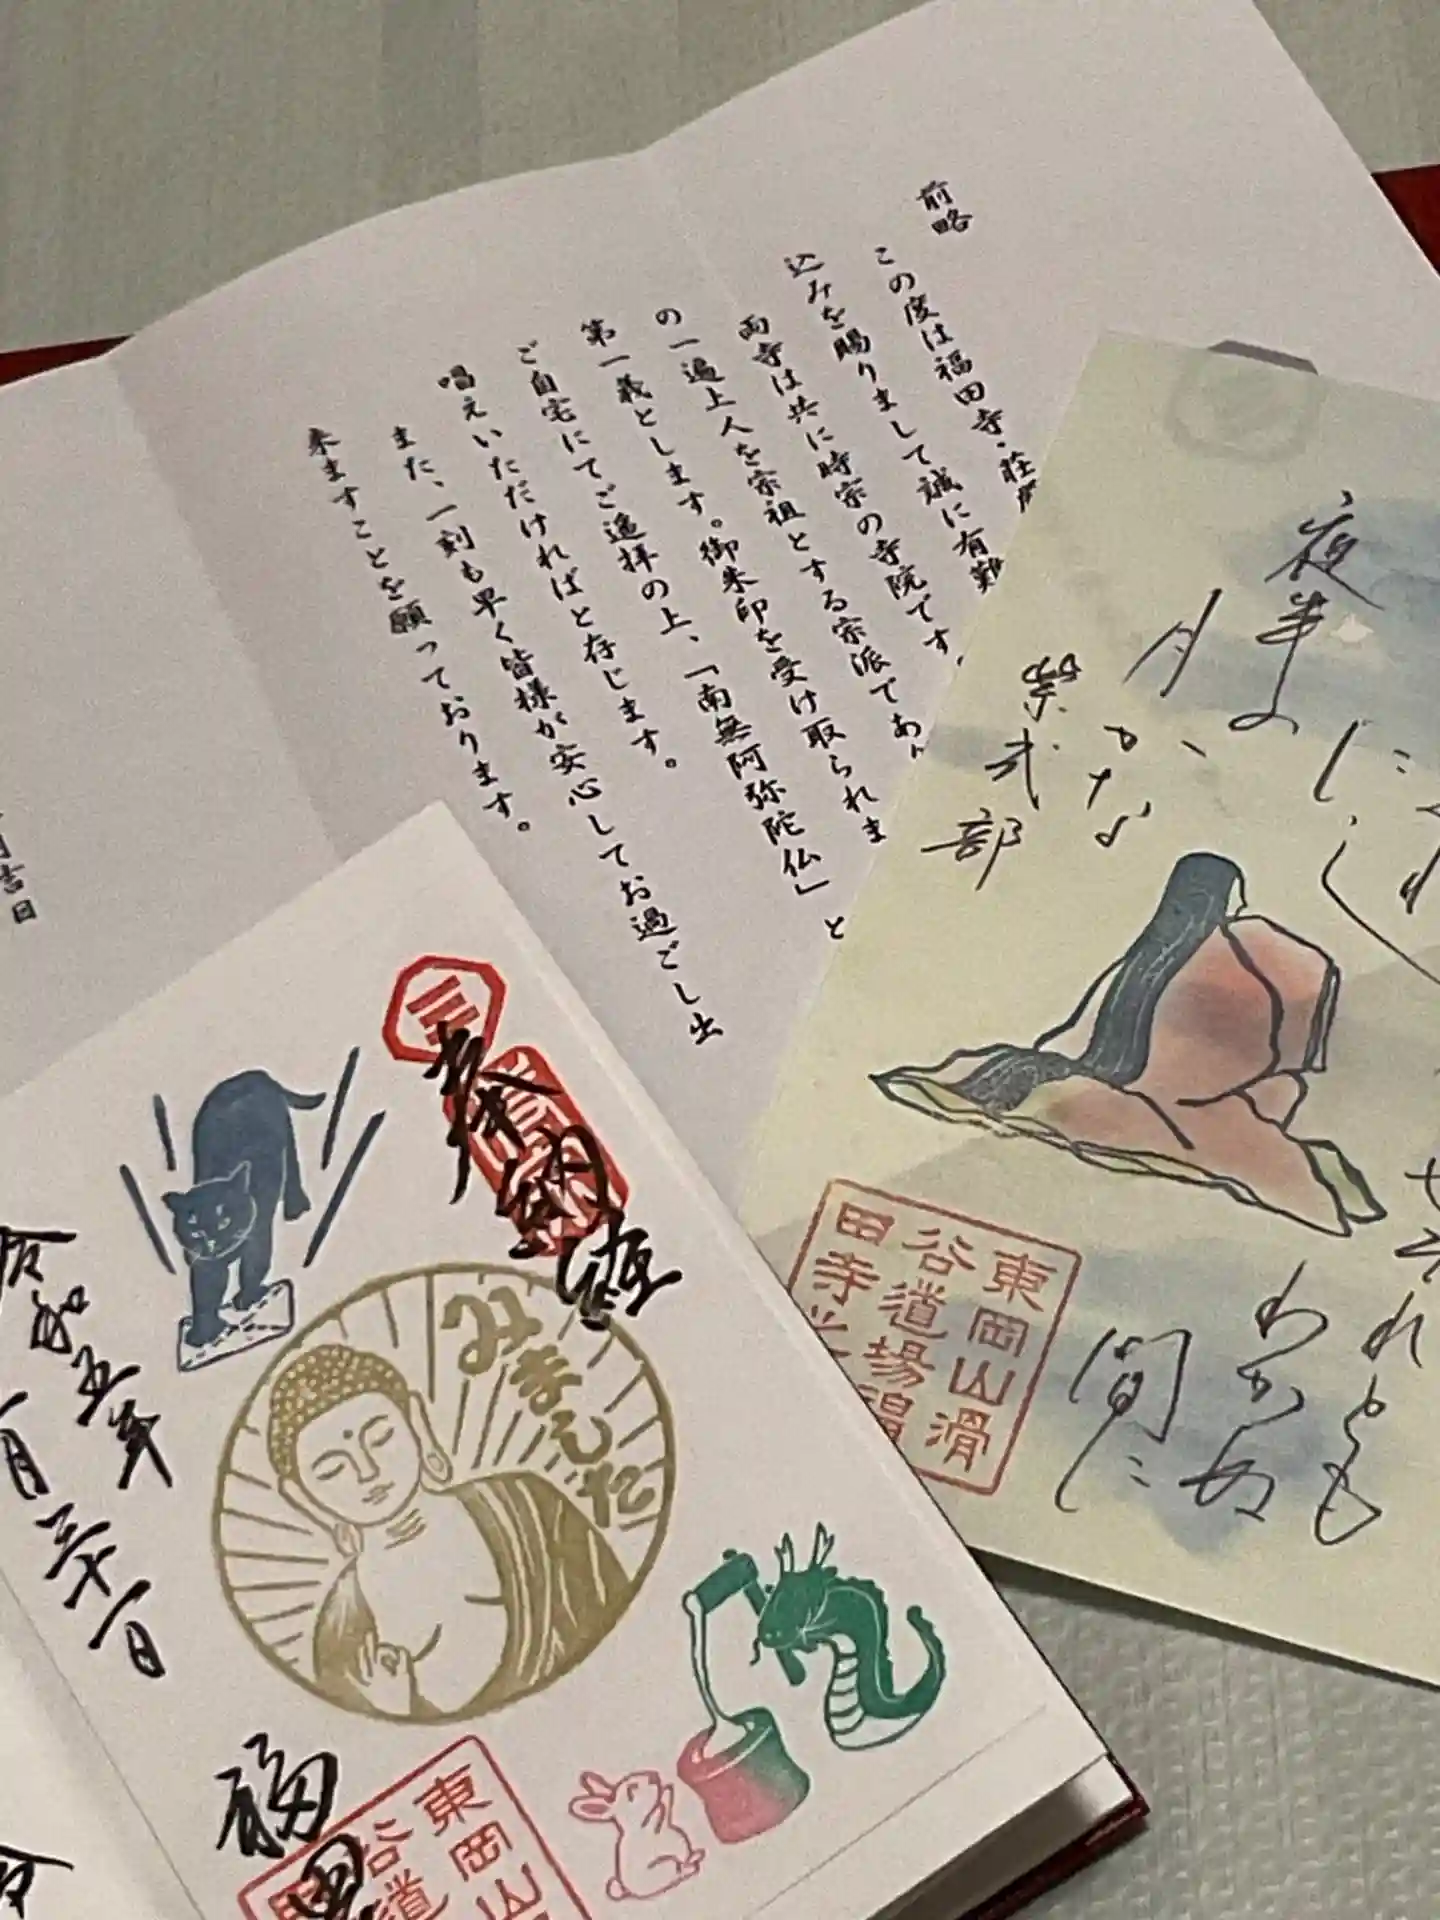 前略
この度は福田寺・荘厳
込みを賜りまして誠に有難
両寺は共に時宗の寺院です。
の一遍上人を宗祖とする宗派であ
第一義とします。御朱印を受け取られま
ご自宅にてご遥拝の上、「南無阿弥陀仏」と
唱えいただければと存じます。
また、一刻も早く皆様が安心してお過ごし出
来ますことを願っております。
月吉日
それとも
わかぬ
間に
夜半の
月かな
紫式部
東岡山滑
谷道場福
田寺
奉納経
みました
令和五年
月三十一日
福田
東岡山
谷道
田